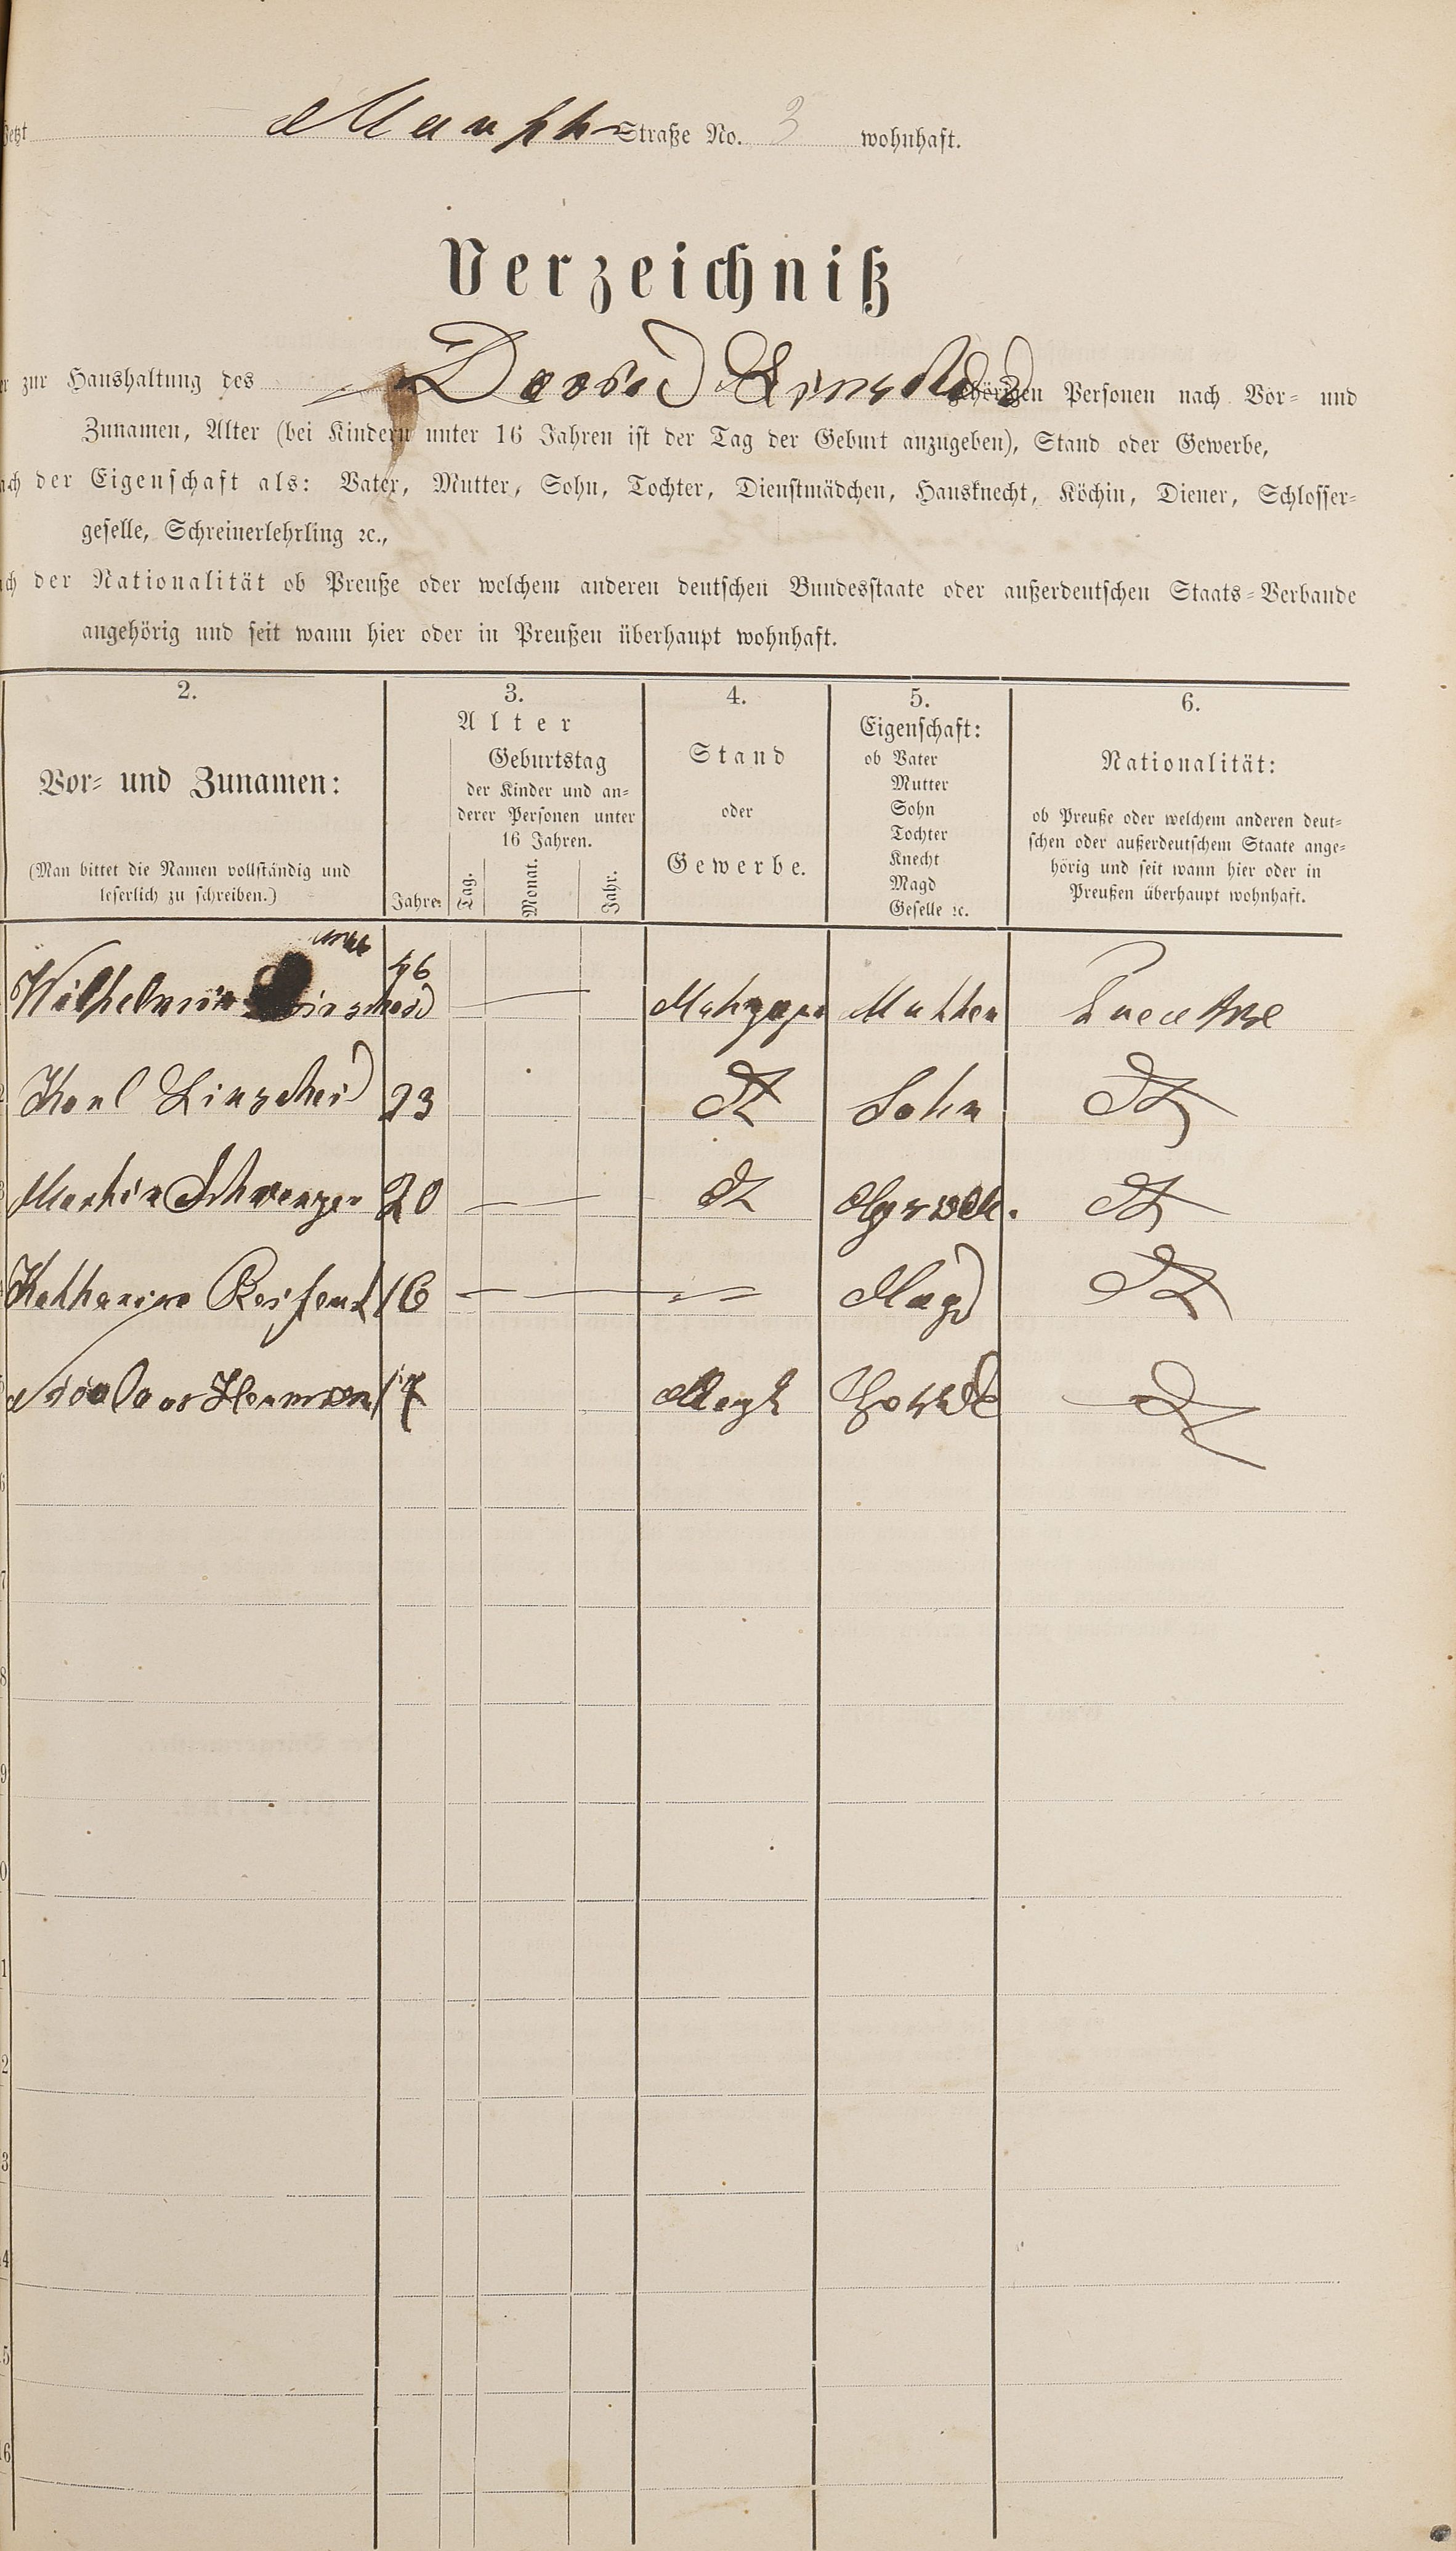 Jetzt Markt Straße No. 3 wohnhaft.
Verzeichniß
zur Haushaltung des David Linscheid gehörigen Personen nach Vor- und
Zunamen, Alter (bei Kindern unter 16 Jahren ist der Tag der Geburt anzugeben), Stand oder Gewerbe,
nach der Eigenschaft als: Vater, Mutter, Sohn, Tochter, Dienstmädchen, Hausknecht, Köchin, Diener, Schlosser-
geselle, Schreinerlehrling ꝛc.,
nach der Nationalität ob Preuße oder welchem anderen deutschen Bundesstaate oder außerdeutschen Staats-Verbande
angehörig und seit wann hier oder in Preußen überhaupt wohnhaft.
2.
Vor- und Zunamen:
(Man bittet die Namen vollständig und
leserlich zu schreiben.)
3.
Alter
Jahre:
Geburtstag
der Kinder und an-
derer Personen unter
16 Jahren.
Tag.
Monat.
Jahr.
4.
Stand
oder
Gewerbe.
5.
Eigenschaft:
ob Vater
Mutter
Sohn
Tochter
Knecht
Magd
Geselle ꝛc.
6.
Nationalität:
ob Preuße oder welchem anderen deut-
schen oder außerdeutschem Staate ange-
hörig und seit wann hier oder in
Preußen überhaupt wohnhaft.
Wilhelmine Linscheid 46 Metzger Mutter Preuße
Karl Linscheid 23 Sohn
Martin Schwenger 20
Katharina 16 Magd
Nicolaus Hermann 17
6
7
8
9
0
1
2
3
4
5
16